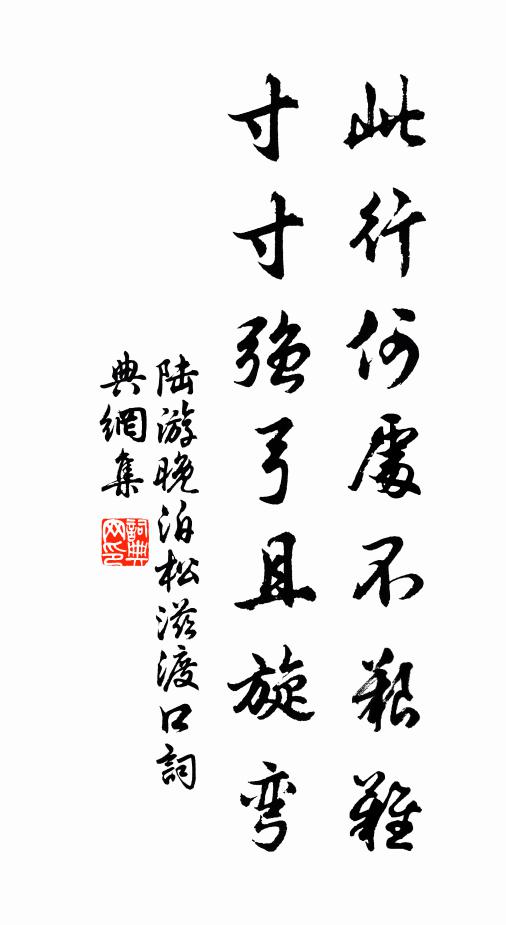 此行何處不艱難
寸寸強弓且旋彎
陆游晚泊松滋渡口詞
典網集
詞典
网印